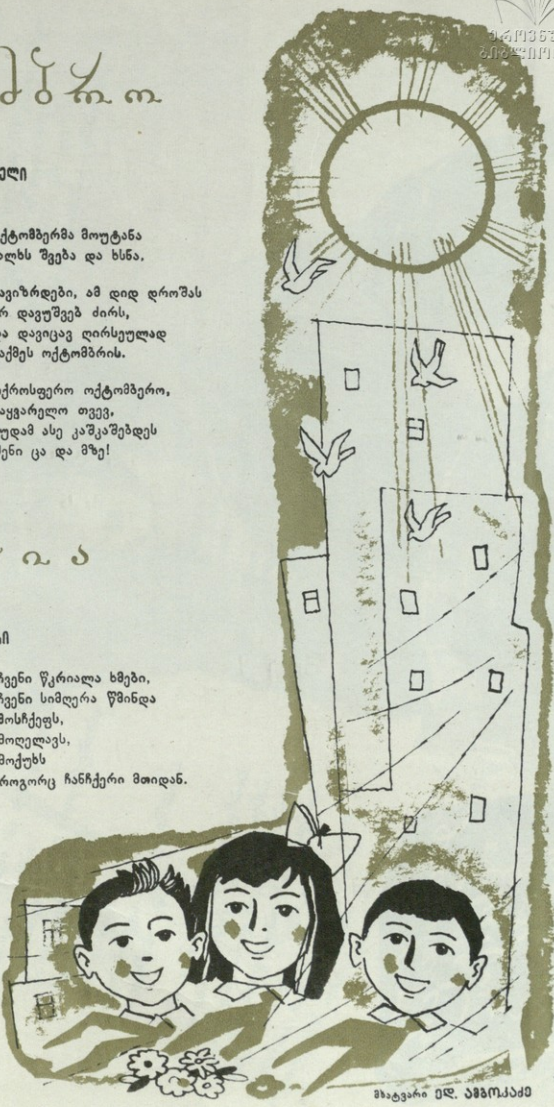 ქტომბერმა მოუტანა
ალხს შვება და ხსნა.
ავიზრდები, ამ დიდ დროშას
რ დავუშვებ ძირს,
ა დავიცავ ღირსეულად
აქმეს ოქტომბრის.
ქროსფერო ოქტომბერო,
აყვარელო თვევ,
უდამ ასე კაშკაშებდეს
ენი ცა და მზე!
ჩვენი წკრიალა ხმები,
ჩვენი სიმღერა წმინდა
მოსჩქეფს,
მოღელავს,
მოქუხს
როგორც ჩანჩქერი მთიდან.
მხატვარი ედ. ამბოკაძე